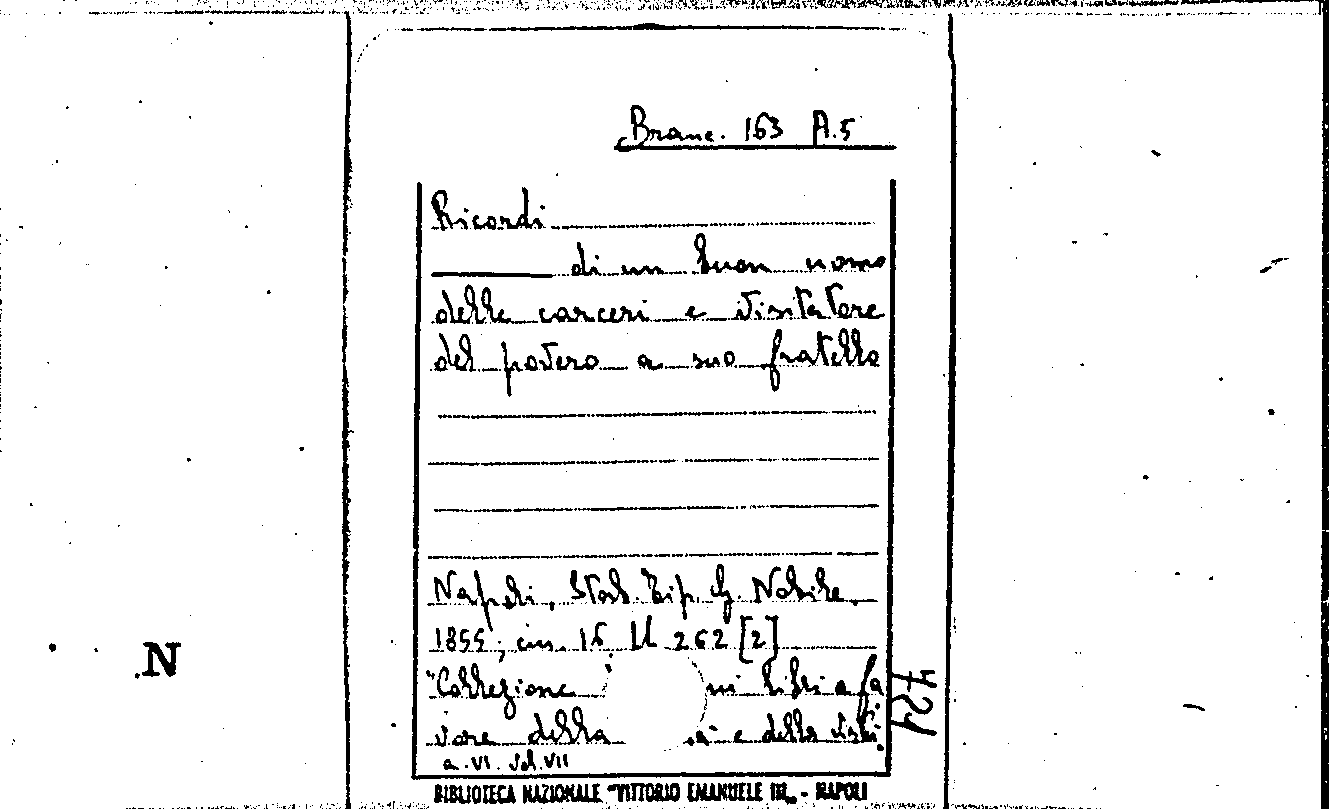 Branc. 163 A.5
Ricordi
di un buon uomo
delle carceri e visitatore
del povero a suo fratello
Napoli, Stab. Tip. G. Nobile.
1855, in. 16 pp 262 [2]
"Collezione ni libri a fa
vore della a e della
a. VI. Vol. VII
721
N
BIBLIOTECA NAZIONALE "VITTORIO EMANUELE III„ - NAPOLI